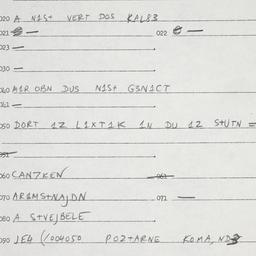 020 A N1S+ VERT DOS KAL83
021 — 022 —
023 —
030 —
040 A1R OBN DUS N1S+ G3N1CT
041 —
050 DORT 1Z L1XT1K 1N DU 1Z S+UTN =
051
060 CAN7KEN 061
070 AR1MS+NAJDN 071 —
080 A S+VEJBELE
090 JE4 (/004050 POZ+ARNE KOMA,